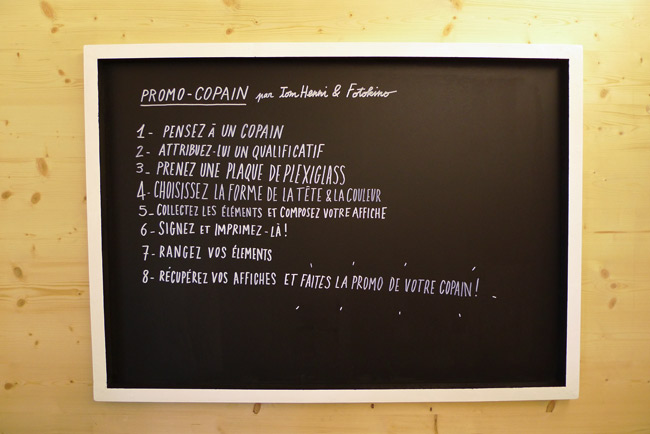 PROMO-COPAIN par Tom Henni & Fotokino
1- PENSEZ À UN COPAIN
2- ATTRIBUEZ-LUI UN QUALIFICATIF
3_ PRENEZ UNE PLAQUE DE PLEXIGLASS
4- CHOISISSEZ LA FORME DE LA TÊTE & LA COULEUR
5_ COLLECTEZ LES ÉLÉMENTS ET COMPOSEZ VOTRE AFFICHE
6_ SIGNEZ ET IMPRIMEZ-LÀ!
7- RANGEZ VOS ÉLEMENTS
8- RÉCUPÉREZ VOS AFFICHES ET FAITES LA PROMO DE VOTRE COPAIN!